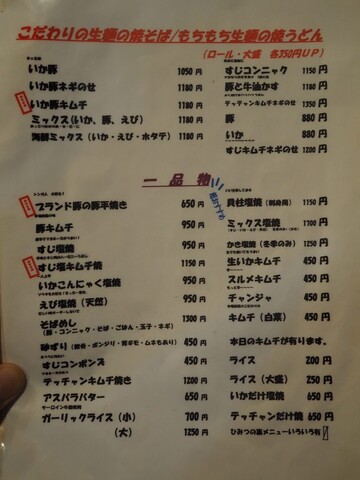 こだわりの生麺の焼そば/もちもち生麺の焼うどん
(ロール・大盛 各350円UP)
いか豚 1050円
いか豚ネギのせ 1180円
いか豚キムチ 1180円
ミックス(いか、豚、えび) 1180円
海鮮ミックス(いか・えび・ホタテ) 1180円
すじコンニャク 1150円
豚と牛油かす 1180円
テッチャンキムチネギのせ 1350円
豚 880円
いか 880円
すじキムチネギのせ 1200円
一品物
ブランド豚の豚平焼き 650円
豚キムチ 950円
すじ塩焼 950円
すじ塩キムチ焼 1150円
いかこんにゃく塩焼 950円
えび塩焼(天然) 950円
そばめし 1300円
(豚・コンニャク・そば・ごはん・玉子・ネギ)
砂ずり 450円
すじコンポンズ 450円
テッチャンキムチ焼き 1200円
アスパラバター 650円
ガーリックライス(小) 700円
(大) 1250円
貝柱塩焼(刺身用) 1150円
ミックス塩焼 1700円
かき塩焼(冬季のみ) 1250円
生いかキムチ 450円
スルメキムチ 450円
チャンジャ 450円
キムチ(白菜) 450円
本日のキムチが有ります。
ライス 200円
ライス(大盛) 250円
いかだけ塩焼 650円
テッチャンだけ焼 650円
ひみつの裏メニューいろいろ有